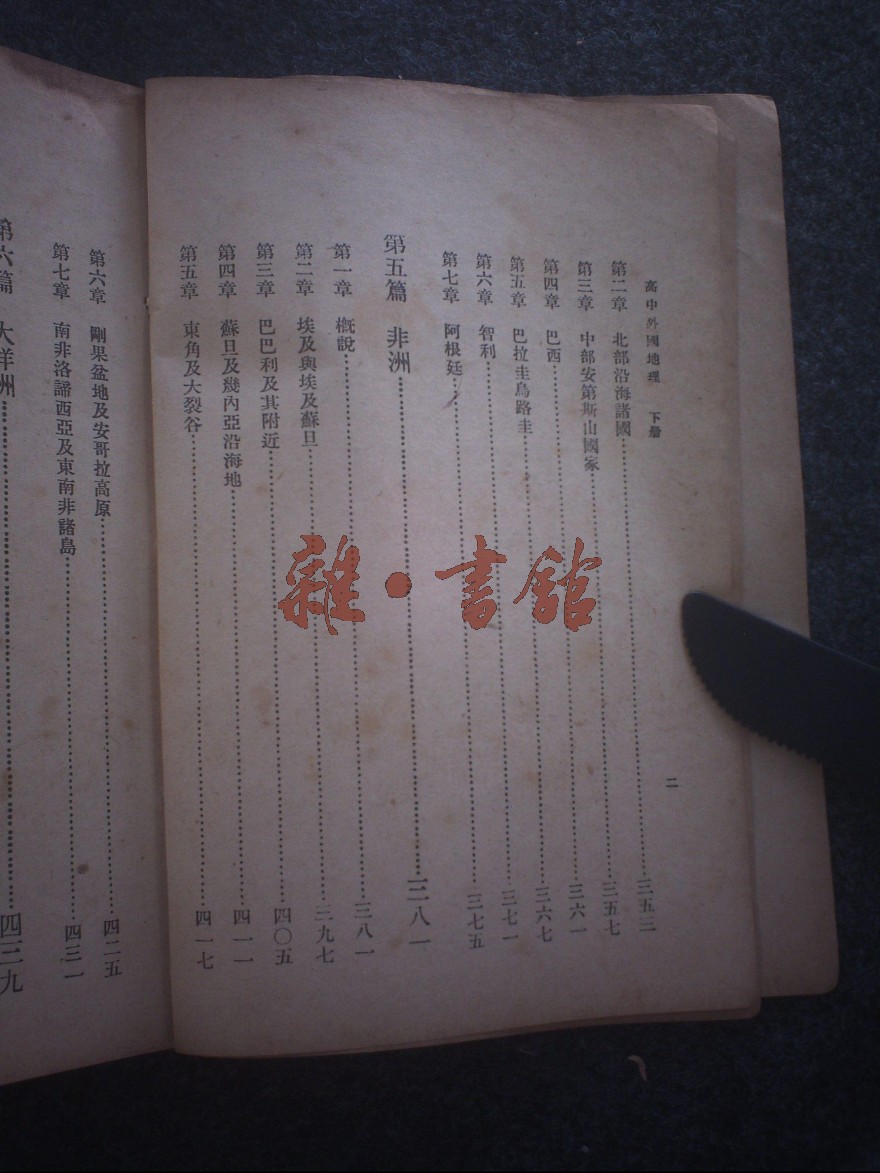 高中外國地理　下册
二
第二章　北部沿海諸國……三五三
第三章　中部安第斯山國家……三五七
第四章　巴西……三六一
第五章　巴拉圭烏路圭……三六七
第六章　智利……三七一
第七章　阿根廷……三七五
第五篇　非洲……三八一
第一章　概說……三八一
第二章　埃及與埃及蘇旦……三九七
第三章　巴巴利及其附近……四〇五
第四章　蘇旦及幾內亞沿海地……四一一
第五章　東角及大裂谷……四一七
第六章　剛果盆地及安哥拉高原……四二五
第七章　南非洛諦西亞及東南非諸島……四三一
第六篇　大洋洲……四三九
雜·書館